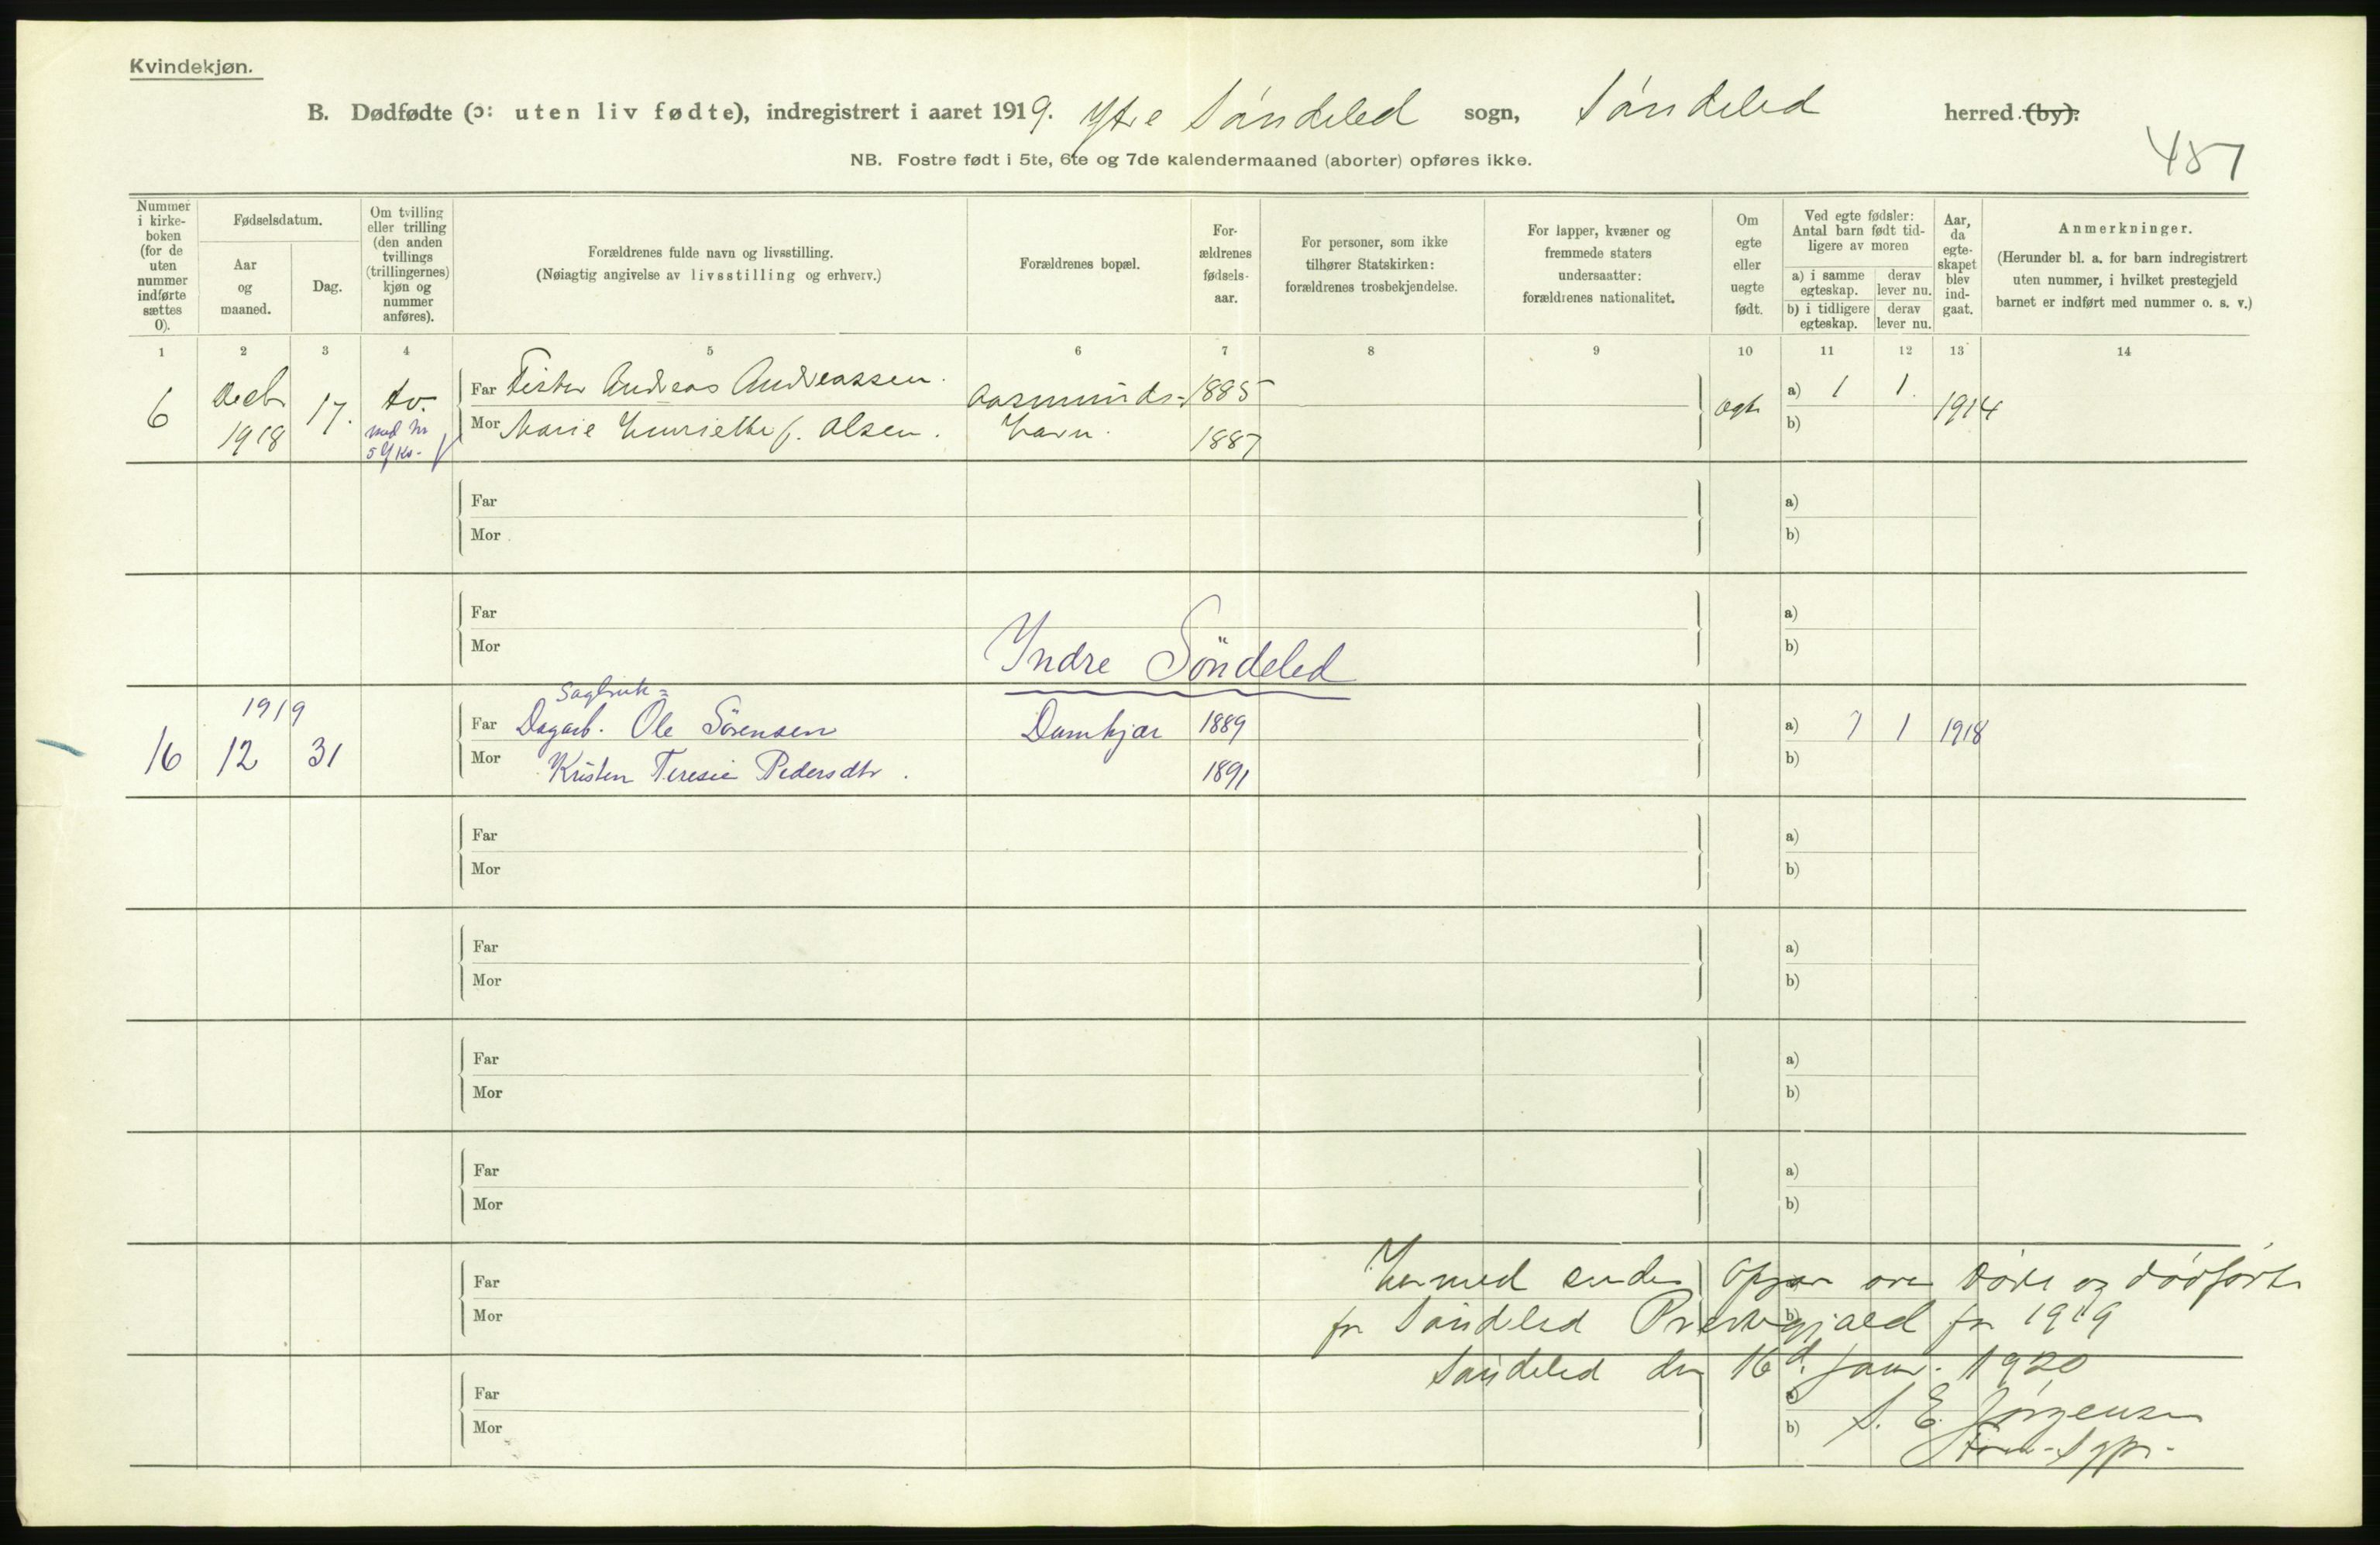 Kvindekjøn.
B. Dødfødte (ɔ: uten liv fødte), indregistrert i aaret 1919. Ytre Søndeled sogn, Søndeled herred (by).
487
NB. Fostre født i 5te, 6te og 7de kalendermaaned (aborter) opføres ikke.
Nummer i kirke-boken (for de uten nummer indførte sættes 0).
Fødselsdatum.
Aar og maaned.
Dag.
Om tvilling eller trilling (den anden tvillings (trillingernes) kjøn og nummer anføres).
Forældrenes fulde navn og livsstilling.
(Nøiagtig angivelse av livsstilling og erhverv.)
Forældrenes bopæl.
For-ældrenes fødsels-aar.
For personer, som ikke tilhører Statskirken: forældrenes trosbekjendelse.
For lapper, kvæner og fremmede staters undersaatter: forældrenes nationalitet.
Om egte eller uegte født.
Ved egte fødsler: Antal barn født tid-ligere av moren
a) i samme egteskap.
derav lever nu.
b) i tidligere egteskap.
derav lever nu.
Aar, da egte-skapet blev ind-gaat.
Anmerkninger.
(Herunder bl. a. for barn indregistrert uten nummer, i hvilket prestegjeld barnet er indført med nummer o. s. v.)
1 2 3 4 5 6 7 8 9 10 11 12 13 14
6 Decb 1918 17. tv. med Nr 5
Far Fisker Andreas Andreassen. Aasmunds- 1885 ægte a) 1 1. 1914
Mor Marie Henriette f. Olsen. havn. 1887 b)
Far a)
Mor b)
Far a)
Mor b)
Yndre Söndeled
1919
16 12 31
Sagbruk=
Far Dagarb. Ole Sörensen Damkjær 1889 a) 1 1918
Mor Kristen Teresie Pedersdtr. 1891 b)
Far a)
Mor b)
Far a)
Mor b)
Far a)
Mor b)
Far a)
Mor b)
Far
Mor b)
Hermed sendes Opgave over Døde og dødfødte
for Søndeled Prestegjæld for 1919
Søndeled den 16d. Janr. 1920
S. E. Jørgensen
Far a)
Mor b)